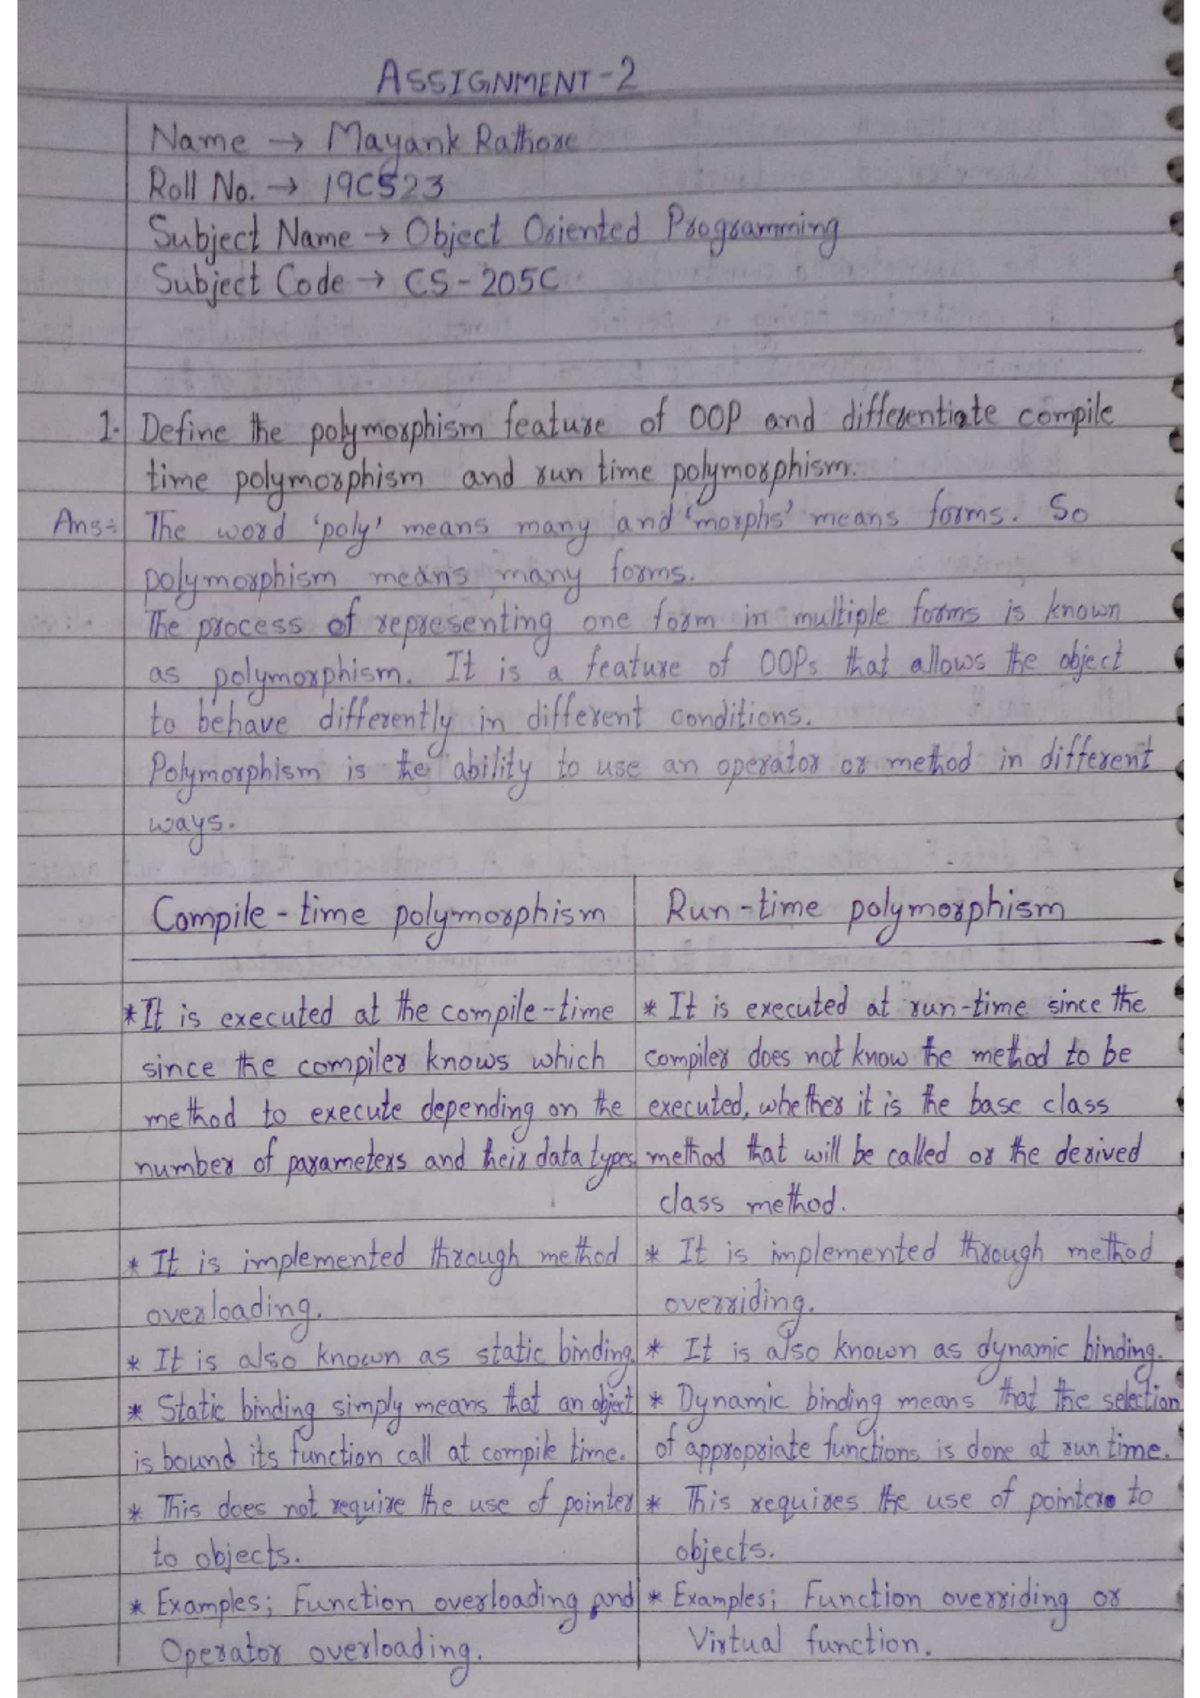 ASSIGNMENT-2
Name → Mayank Rathore
Roll No. → 19CS23
Subject Name → Object Oriented Programming
Subject Code → CS-205C
1. Define the polymorphism feature of OOP and differentiate compile
time polymorphism and run time polymorphism.
Ans:- The word 'poly' means many and 'morphs' means forms. So
polymorphism means many forms.
The process of representing one form in multiple forms is known
as polymorphism. It is a feature of OOPs that allows the object
to behave differently in different conditions.
Polymorphism is the ability to use an operator or method in different
ways.
Compile-time polymorphism
* It is executed at the compile-time
since the compiler knows which
method to execute depending on the
number of parameters and their data types.
* It is implemented through method
overloading.
* It is also known as static binding.
* Static binding simply means that an object
is bound its function call at compile time.
* This does not require the use of pointer
to objects.
* Examples; Function overloading and
Operator overloading.
Run-time polymorphism
* It is executed at run-time since the
compiler does not know the method to be
executed, whether it is the base class
method that will be called or the derived
class method.
* It is implemented through method
overriding.
* It is also known as dynamic binding.
* Dynamic binding means that the selection
of appropriate functions is done at run time.
* This requires the use of pointers to
objects.
* Examples; Function overriding or
Virtual function.